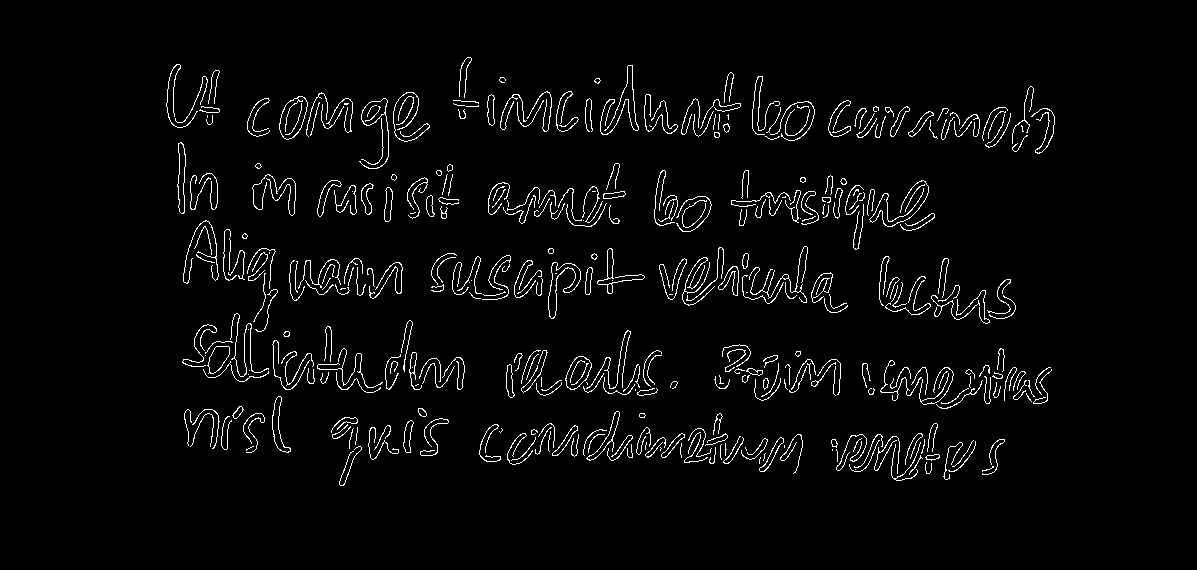 Ut conge tincidunt leo
In in nisi sit amet leo tristique
Aliquam suscipit vehicula lectus
sollicitudin iaculis. Proin
nisl quis condimetum